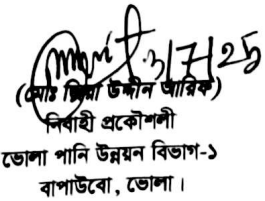 3/7/25
(মোঃ জিয়া উদ্দীন আরিফ)
নির্বাহী প্রকৌশলী
ভোলা পানি উন্নয়ন বিভাগ-১
বাপাউবো, ভোলা।